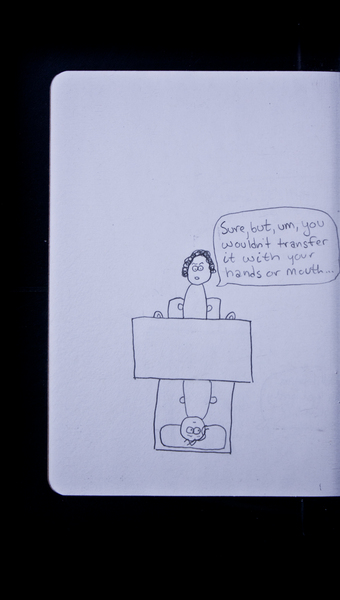 Sure, but, um, you
wouldn't transfer
it with your
hands or mouth...